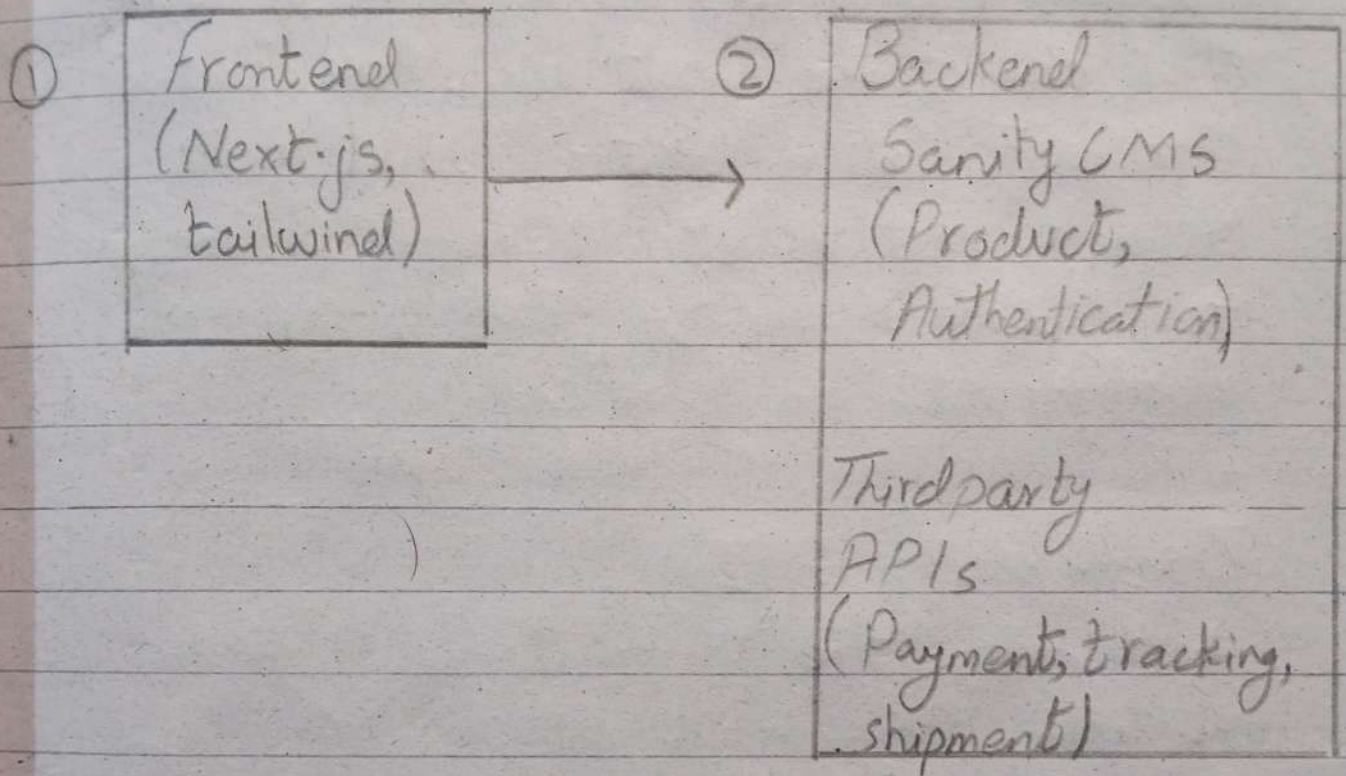 ①
Frontend
(Next.js,
tailwind)
②
Backend
Sanity CMS
(Product,
Authentication)
Third party
APIs
(Payment, tracking,
shipment)